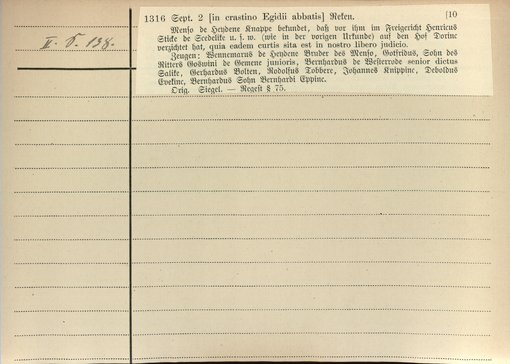 II. S. 138.
1316 Sept. 2 [in crastino Egidii abbatis] Reken. [10
Menso de Heydene Knappe bekundet, daß vor ihm im Freigericht Henricus
Sticke de Scedelike u. s. w. (wie in der vorigen Urkunde) auf den Hof Dorinc
verzichtet hat, quia eadem curtis sita est in nostro libero judicio.
Zeugen: Wennemarus de Heydene Bruder des Menso, Gotfridus, Sohn des
Ritters Goswini de Gemene junioris, Bernhardus de Westerrode senior dictus
Salike, Gerhardus Bolten, Rodolfus Tobbere, Johannes Knippinc, Deboldus
Evekinc, Bernhardus Sohn Bernhardi Eppinc.
Orig. Siegel. — Regest § 75.